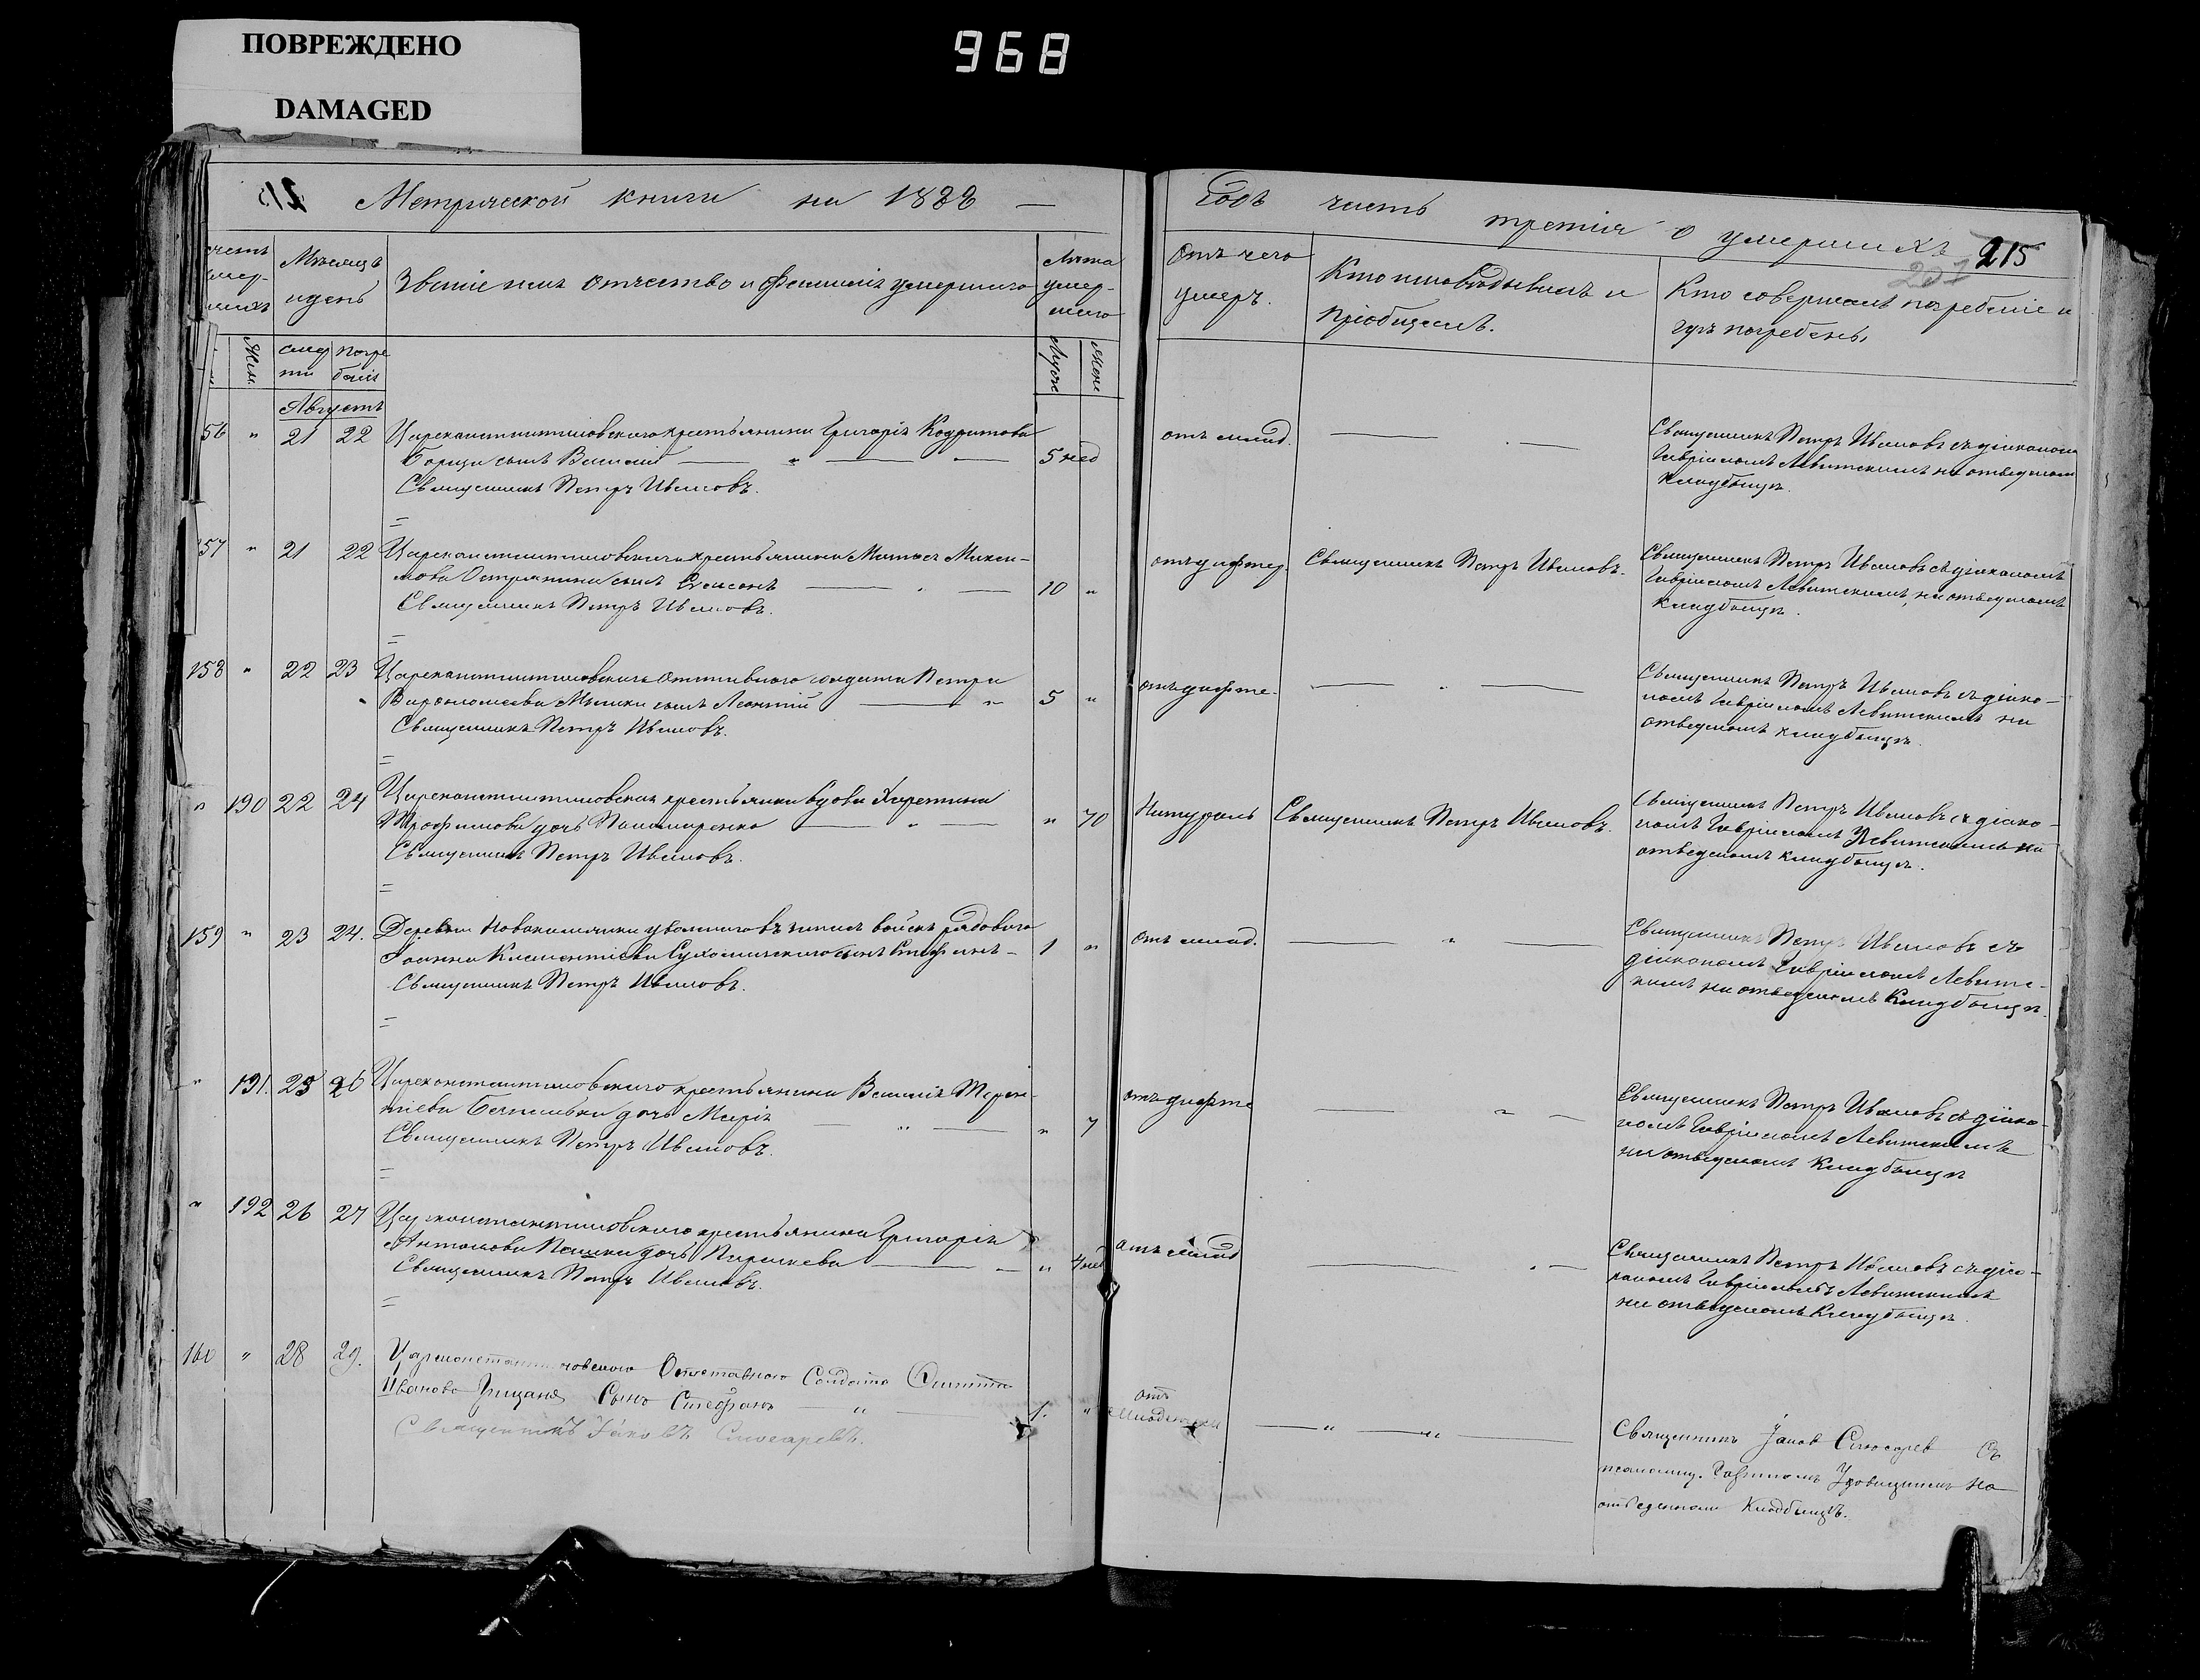 ПОВРЕЖДЕНО
DAMAGED
968
Метрической книги на 1888 —
Годъ часть третія о умершихъ 215
207
счетъ умер-шихъ
Мѣсяцъ и день
Званіе имя отчество и фамилія умершаго
Лѣта умер-шаго
Отъ чего умеръ.
Кто исповѣдывалъ и пріобщалъ.
Кто совершалъ погребеніе и гдѣ погребенъ,
Жен.
смер ти
погре бенія
Муж
Жен
Августъ
56 " 21 22 Цареконстантиновскаго крестьянина Григорія
сынъ Василій — " — — 5 нед
Священникъ Петръ Ивановъ.
отъ млад. — . —
Священникъ Петръ Ивановъ съ діакономъ
Гавріиломъ Левитскимъ на отведеномъ
кладбищѣ.
157 " 21 22 Цареконстантиновскаго крестьянина
сынъ — . — 10 "
Священникъ Петръ Ивановъ.
отъ дифтер Священникъ Петръ Ивановъ.
Священникъ Петръ Ивановъ съ діакономъ
Гавріиломъ Левитскимъ, на отведеномъ
кладбищѣ.
158 " 22 23 Цареконстантиновскаго отставного солдата Петра
Варфоломеева сынъ Леонтій — " 5 "
Священникъ Петръ Ивановъ.
отъ дифте- — . —
Священникъ Петръ Ивановъ съ діако-
номъ Гавріиломъ Левитскимъ на
отведеномъ кладбищѣ.
" 190 22 24 Цареконстантиновская крестьянка вдова Харитина
Трофимова дочь Пономаренко — " — " 70
Священникъ Петръ Ивановъ.
Натураль Священникъ Петръ Ивановъ.
Священникъ Петръ Ивановъ съ діако-
номъ Гавріиломъ Левитскимъ на
отведеномъ кладбищѣ.
159 " 23 24. Деревни въ запасъ войскъ рядового
Іоанна Климентіева сынъ Стефанъ — 1 "
Священникъ Петръ Ивановъ.
отъ млад. — " —
Священникъ Петръ Ивановъ съ
діакономъ Гавріиломъ Левитс-
кимъ на отведеномъ Кладбищѣ.
" 191. 25 26 Цареконстантиновскаго крестьянина Василія Терен-
тіева дочь Марія — " — " 7
Священникъ Петръ Ивановъ.
отъ дифте — " —
Священникъ Петръ Ивановъ съ діако-
номъ Гавріиломъ Левитскимъ
на отведеномъ Кладбищѣ
" 192 26 27 Цареконстантиновскаго крестьянина Григорія
Антонова дочь Параскева — — " 4 нед
Священникъ Петръ Ивановъ.
отъ млад — . —
Священникъ Петръ Ивановъ съ діа-
кономъ Гавріиломъ Левитскимъ
на отведеномъ Кладбищѣ.
160 " 28 29. Цареконстантиновскаго Отставного Солдата
Иванова Грицана Сынъ Стефанъ — " — 1. "
Священникъ Іаковъ Слюсаревъ.
отъ
— " — " —
Священникъ Іаков Слюсарев Съ
псаломщ. на
отведенном Кладбищѣ.